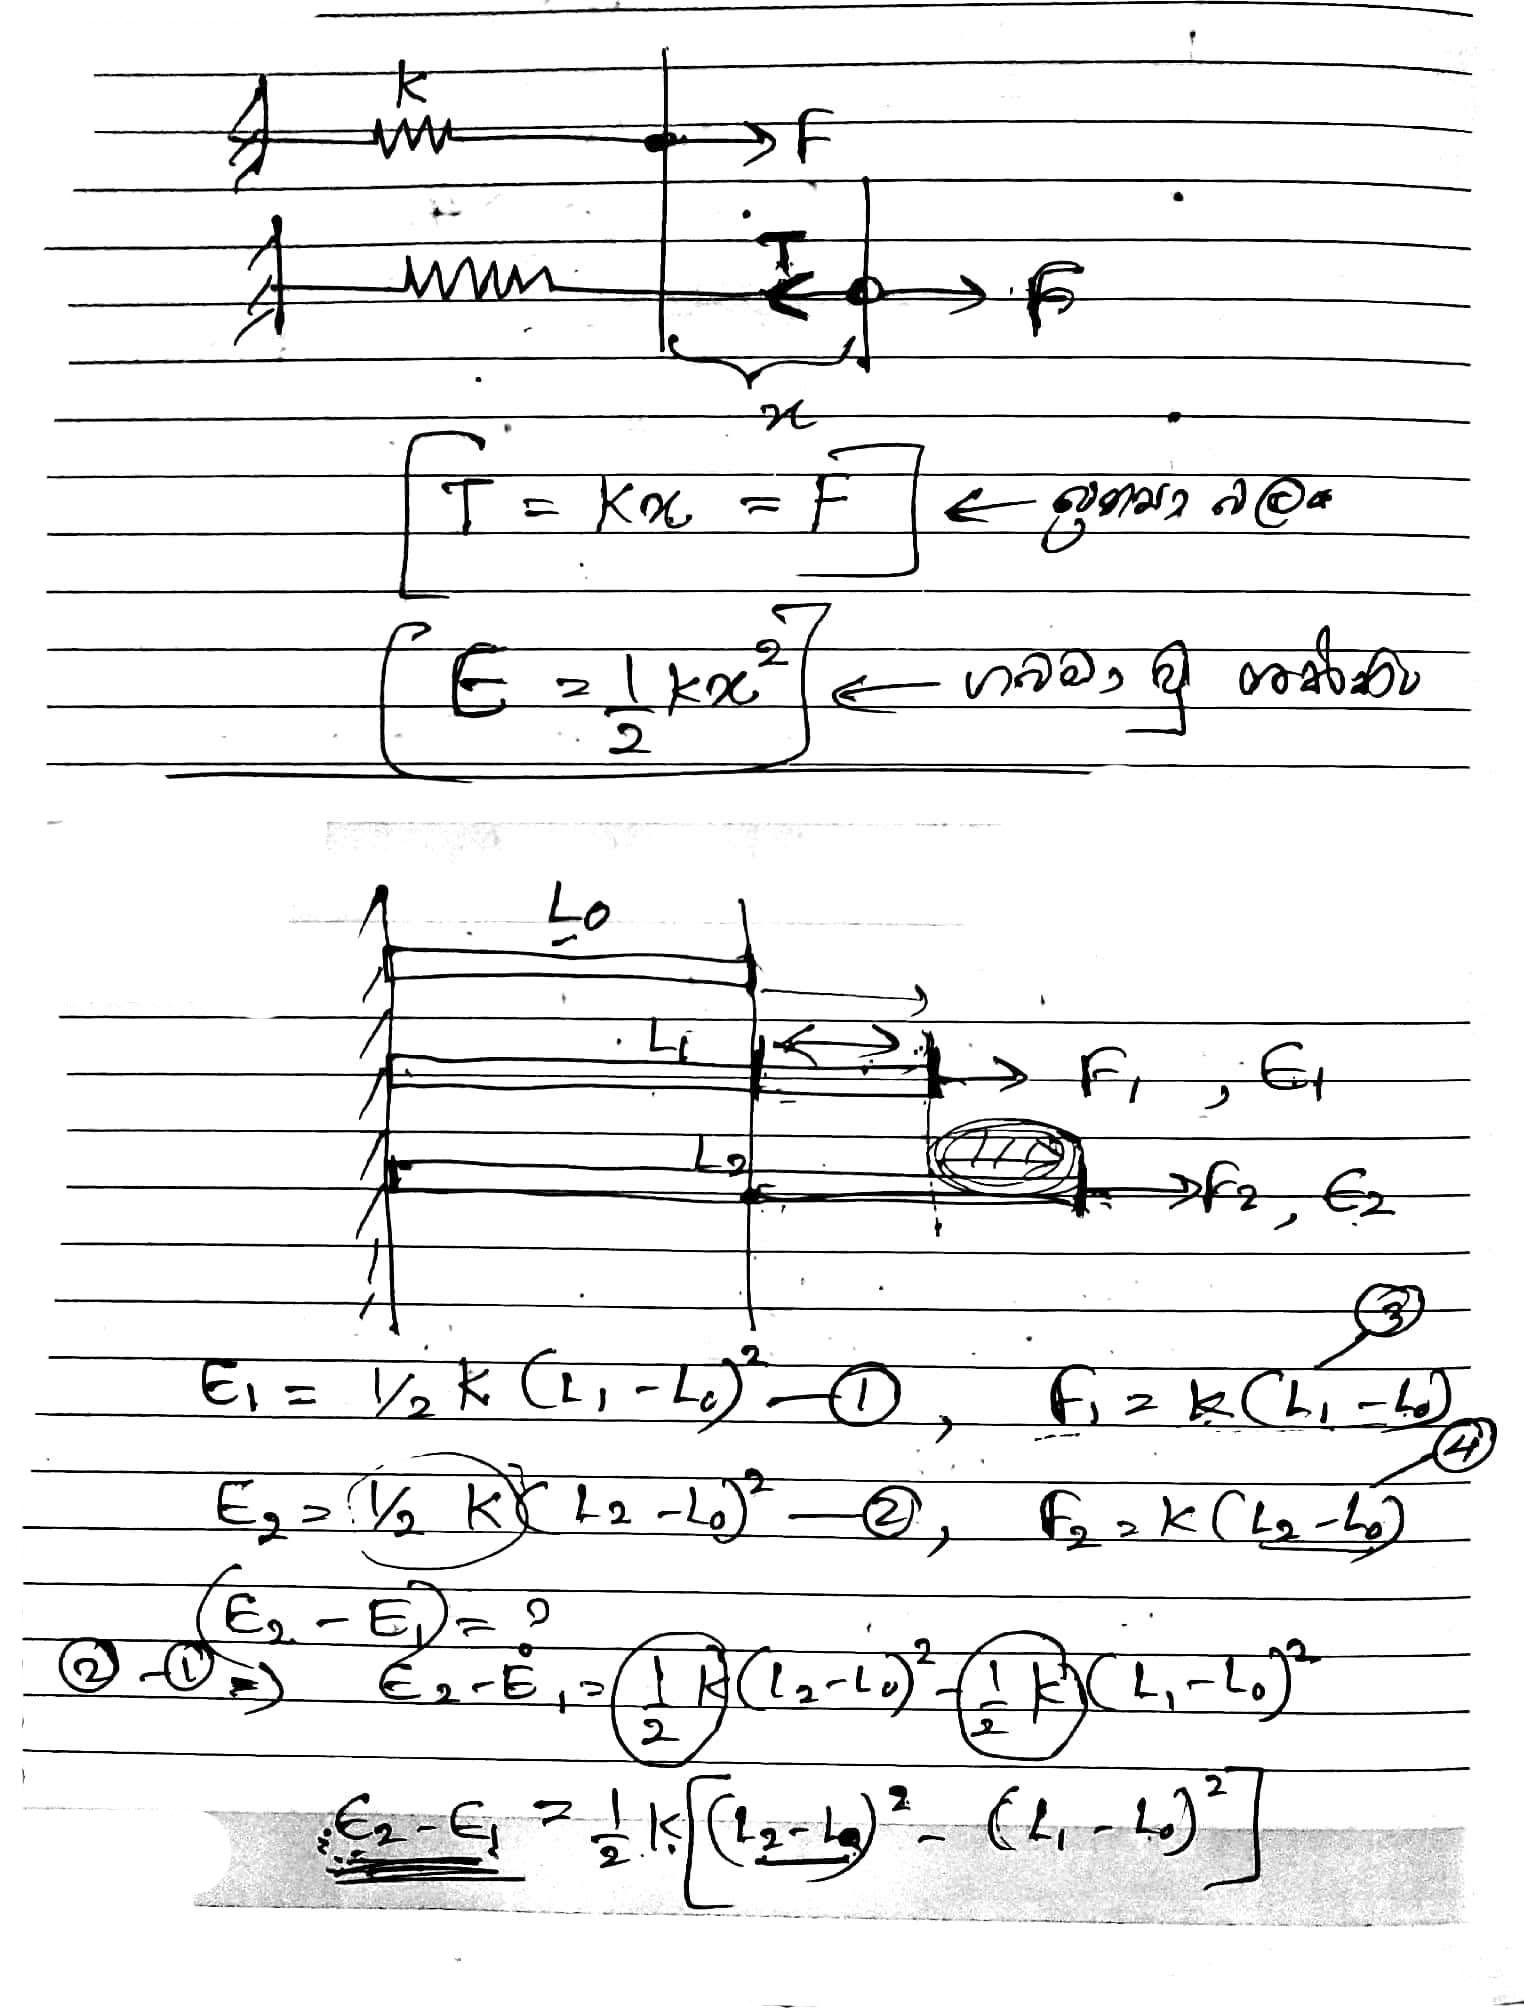 K
F
T
F
x
T = Kx = F ←
E = 1/2 kx² ← ගබඩා වූ ශක්තිය
L₀
L₁
F₁ , E₁
L₂
F₂ , E₂
③
E₁ = 1/2 K (L₁ - L₀)² — ① , F₁ = k(L₁ - L₀)
④
E₂ = 1/2 K (L₂ - L₀)² — ② , F₂ = K (L₂ - L₀)
(E₂ - E₁) = ?
② - ① ⇒ E₂ - E₁ = 1/2 k (L₂ - L₀)² - 1/2 k (L₁ - L₀)²
E₂ - E₁ = 1/2 k [(L₂ - L₀)² - (L₁ - L₀)²]